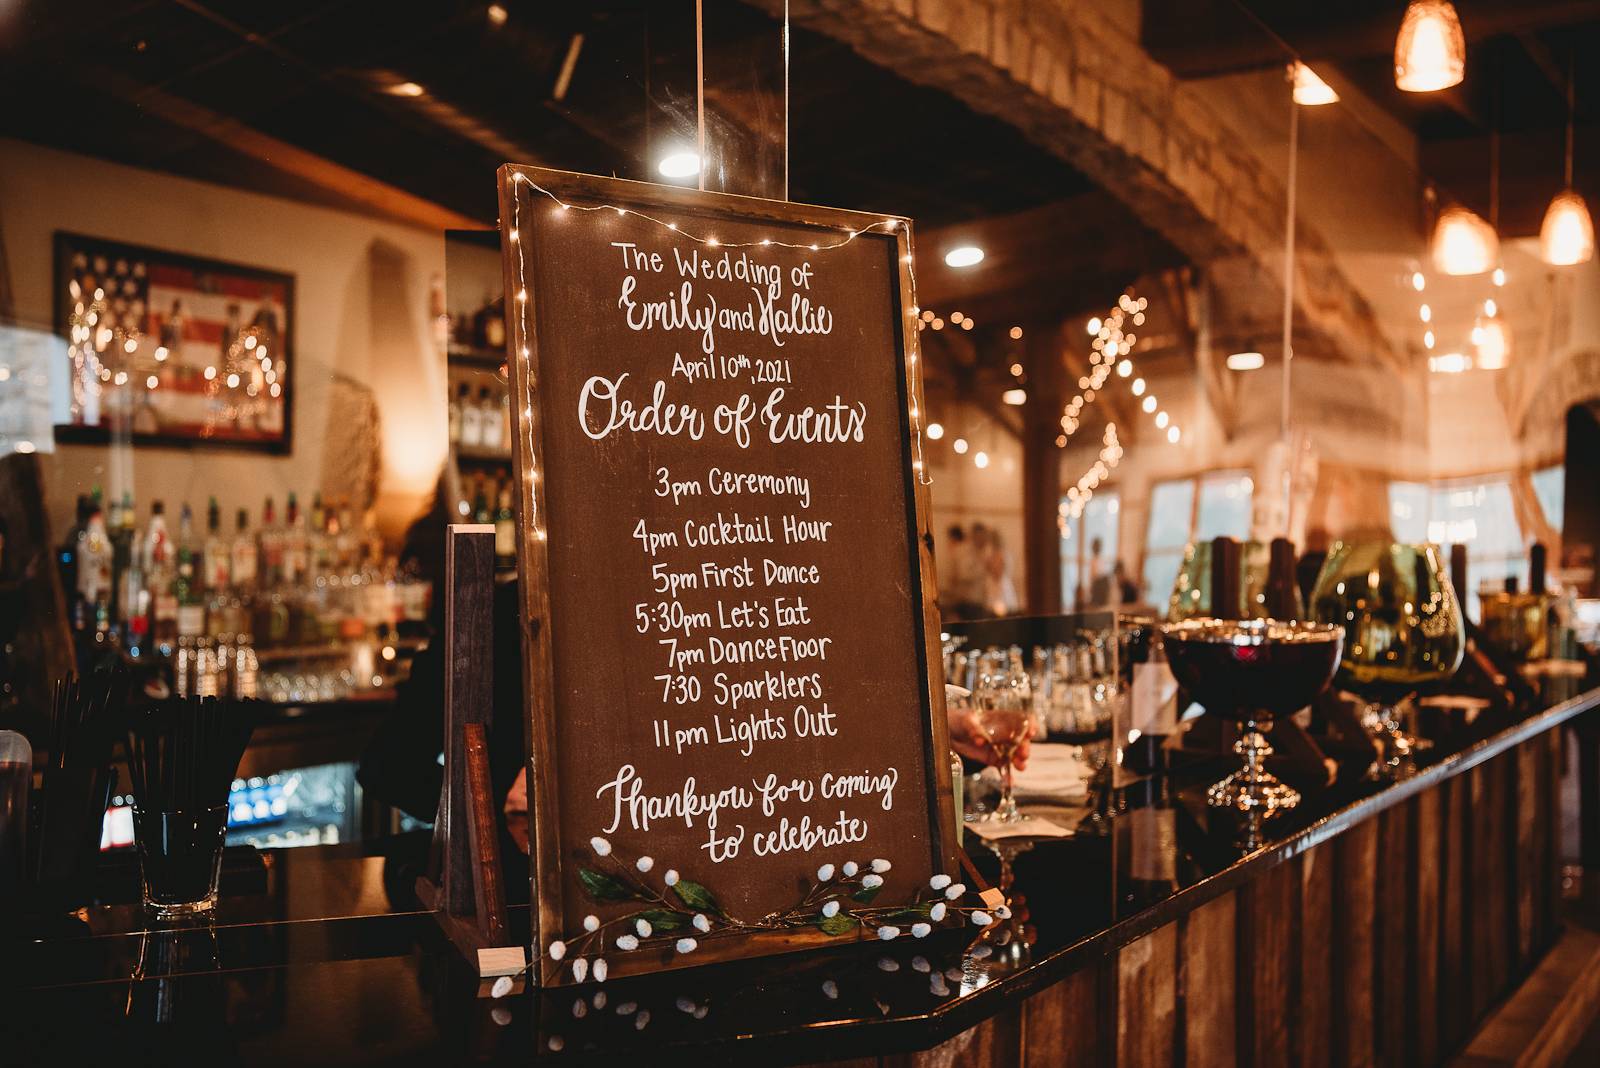 The Wedding of
Emily and Hallie
April 10th, 2021
Order of Events
3pm Ceremony
4pm Cocktail Hour
5pm First Dance
5:30pm Let's Eat
7pm Dance Floor
7:30 Sparklers
11pm Lights Out
Thankyou for coming
to celebrate